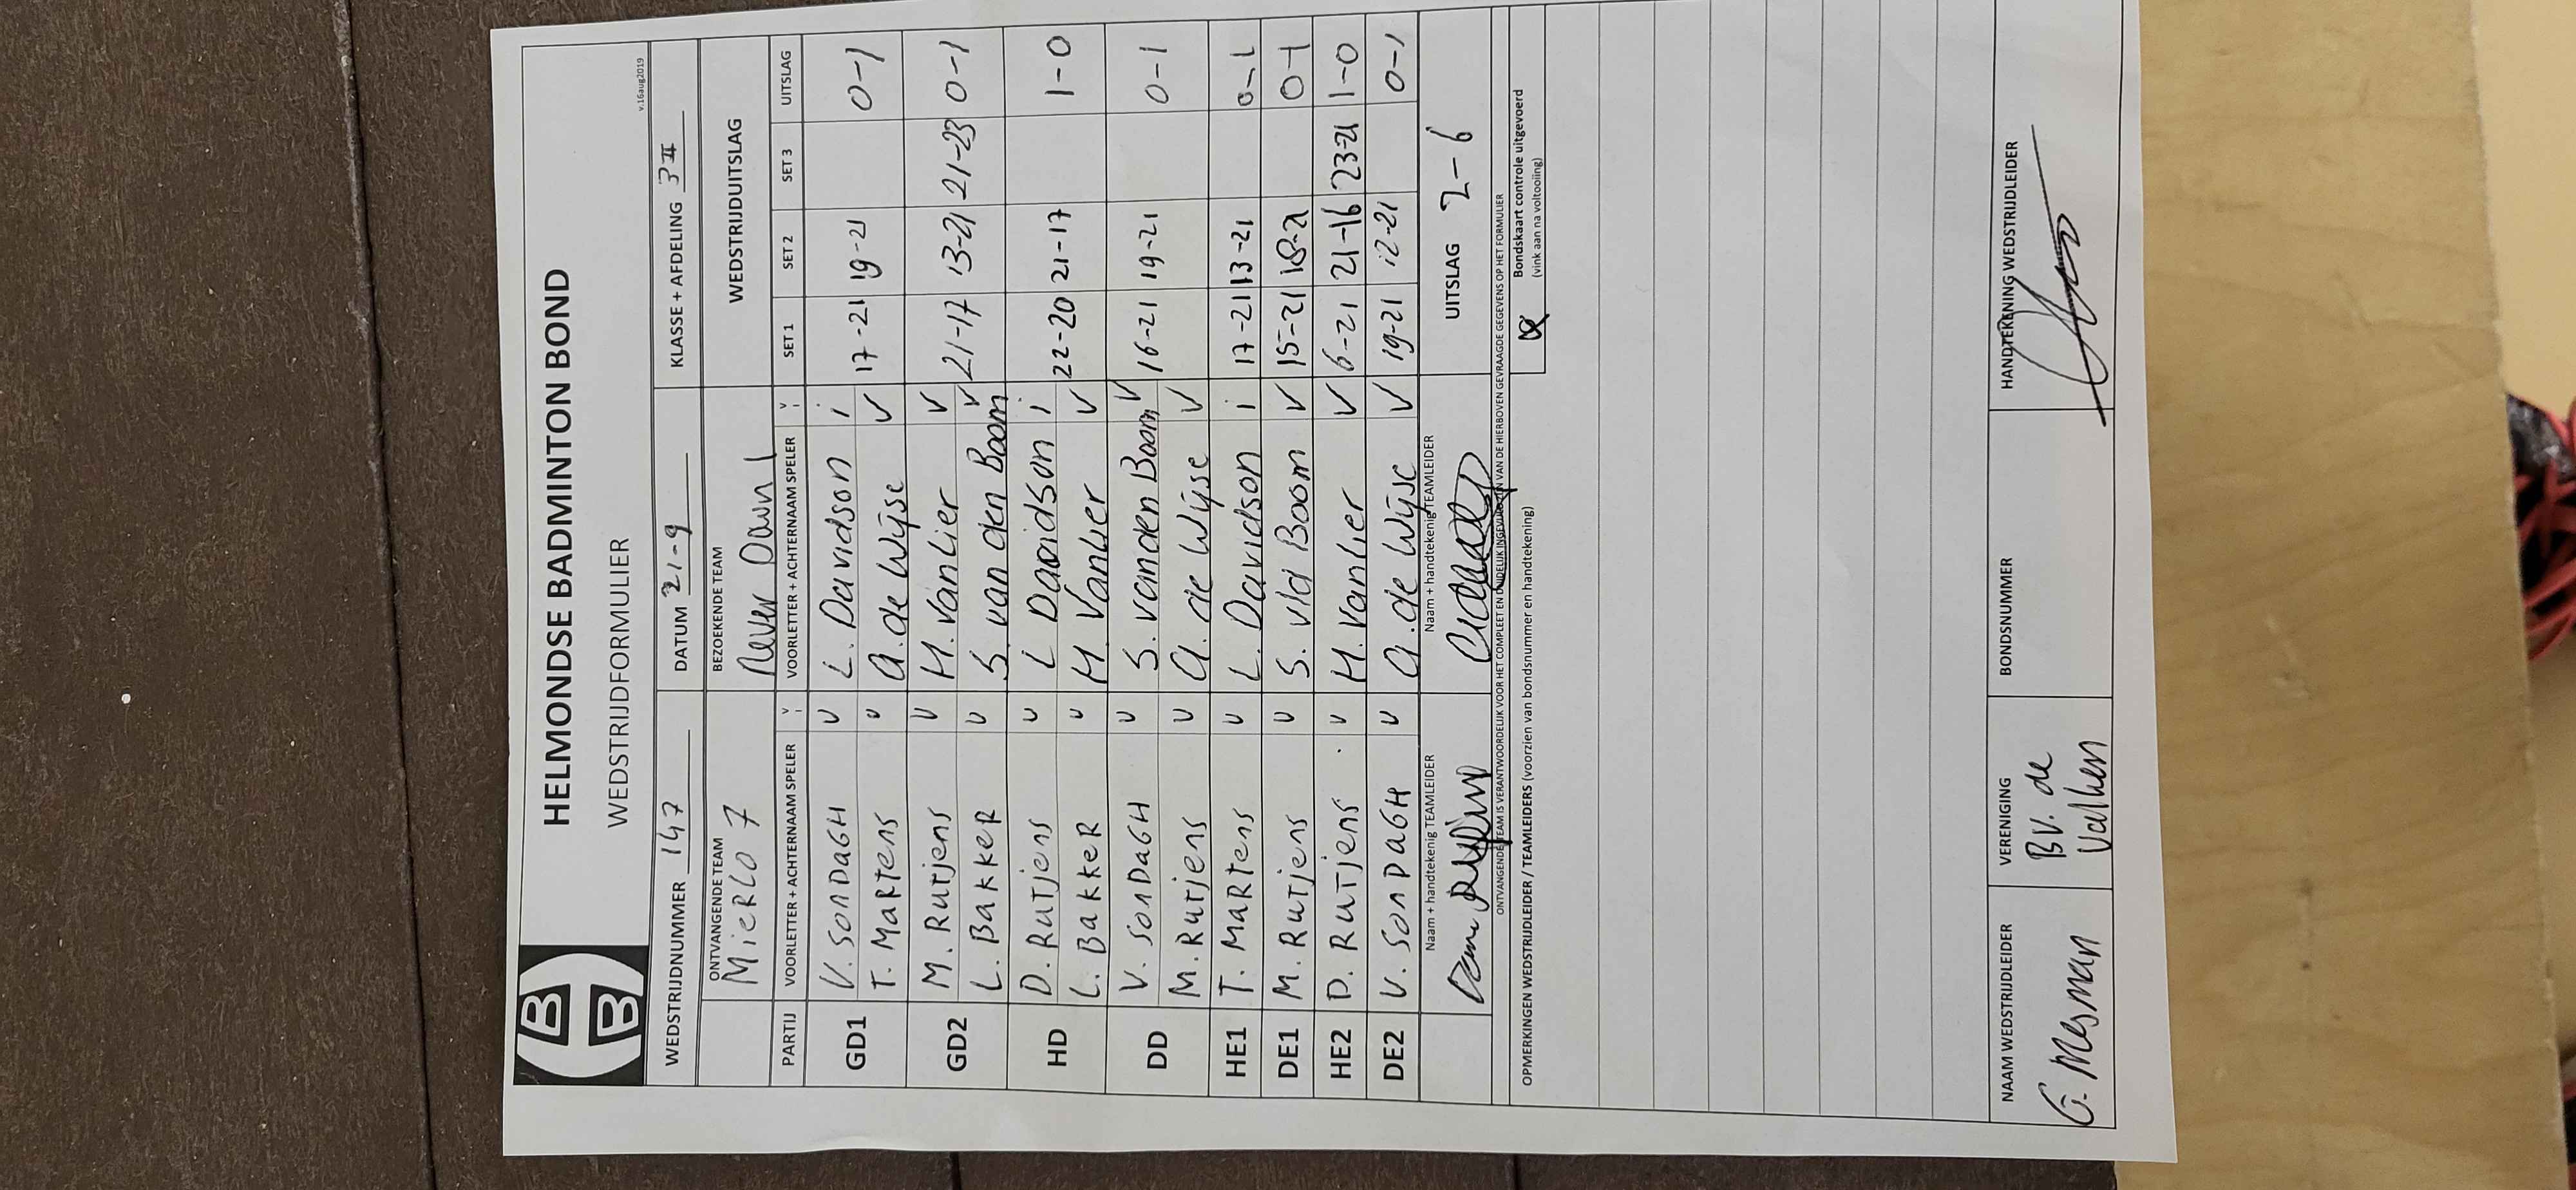 HELMONDSE BADMINTON BOND
WEDSTRIJDFORMULIER
v.16aug2019
WEDSTRIJDNUMMER 147 DATUM 21-9 KLASSE + AFDELING 3 II
ONTVANGENDE TEAM BEZOEKENDE TEAM WEDSTRIJDUITSLAG
MieRLO 7 Never Down 1
PARTIJ VOORLETTER + ACHTERNAAM SPELER V I VOORLETTER + ACHTERNAAM SPELER V I SET 1 SET 2 SET 3 UITSLAG
GD1 V. SONDAGH v L. Davidson i 17-21 19-21 0-1
T. MaRtens v A. de Wijse v
GD2 M. Rutjens v H. Vanlier v 21-17 13-21 21-23 0-1
L. BakkeR v S. van den Boom v
HD D. Rutjens v L Davidson i 22-20 21-17 1-0
L. BakkeR v H. Vanlier v
DD V. SONDAGH v S. van den Boom v 16-21 19-21 0-1
M. Rutjens v A. de Wijse v
HE1 T. MaRtens v L. Davidson i 17-21 13-21 0-1
DE1 M. Rutjens v S. v/d Boom v 15-21 18-21 0-1
HE2 D. Rutjens v H. Vanlier v 6-21 21-16 23-21 1-0
DE2 V. SONDAGH v A. de Wijse v 19-21 12-21 0-1
Naam + handtekenig TEAMLEIDER Naam + handtekenig TEAMLEIDER UITSLAG 2-6
ONTVANGENDE TEAM IS VERANTWOORDELIJK VOOR HET COMPLEET EN DUIDELIJK INGEVULD VAN DE HIERBOVEN GEVRAAGDE GEGEVENS OP HET FORMULIER
OPMERKINGEN WEDSTRIJDLEIDER / TEAMLEIDERS (voorzien van bondsnummer en handtekening)
Bondskaart controle uitgevoerd
(vink aan na voltooiing)
NAAM WEDSTRIJDLEIDER VERENIGING BONDSNUMMER HANDTEKENING WEDSTRIJDLEIDER
G. Mesman BV. de
Valken